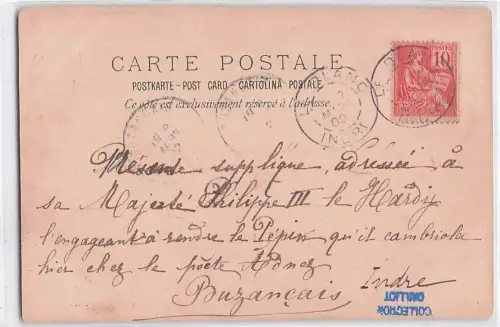 CARTE POSTALE
POSTKARTE - POST CARD - CARTOLINA POSTALE
Ce côté est exclusivement réservé à l'adresse.
10
LE BLANC
(INDRE)
LE BLANC
supplique, adressée à
sa Majesté Philippe III le Hardy
l'engageant à rendre le Pépin qu'il cambriola
hier chez le poète
Buzançais
Indre
COLLECTION
GRILLIOT